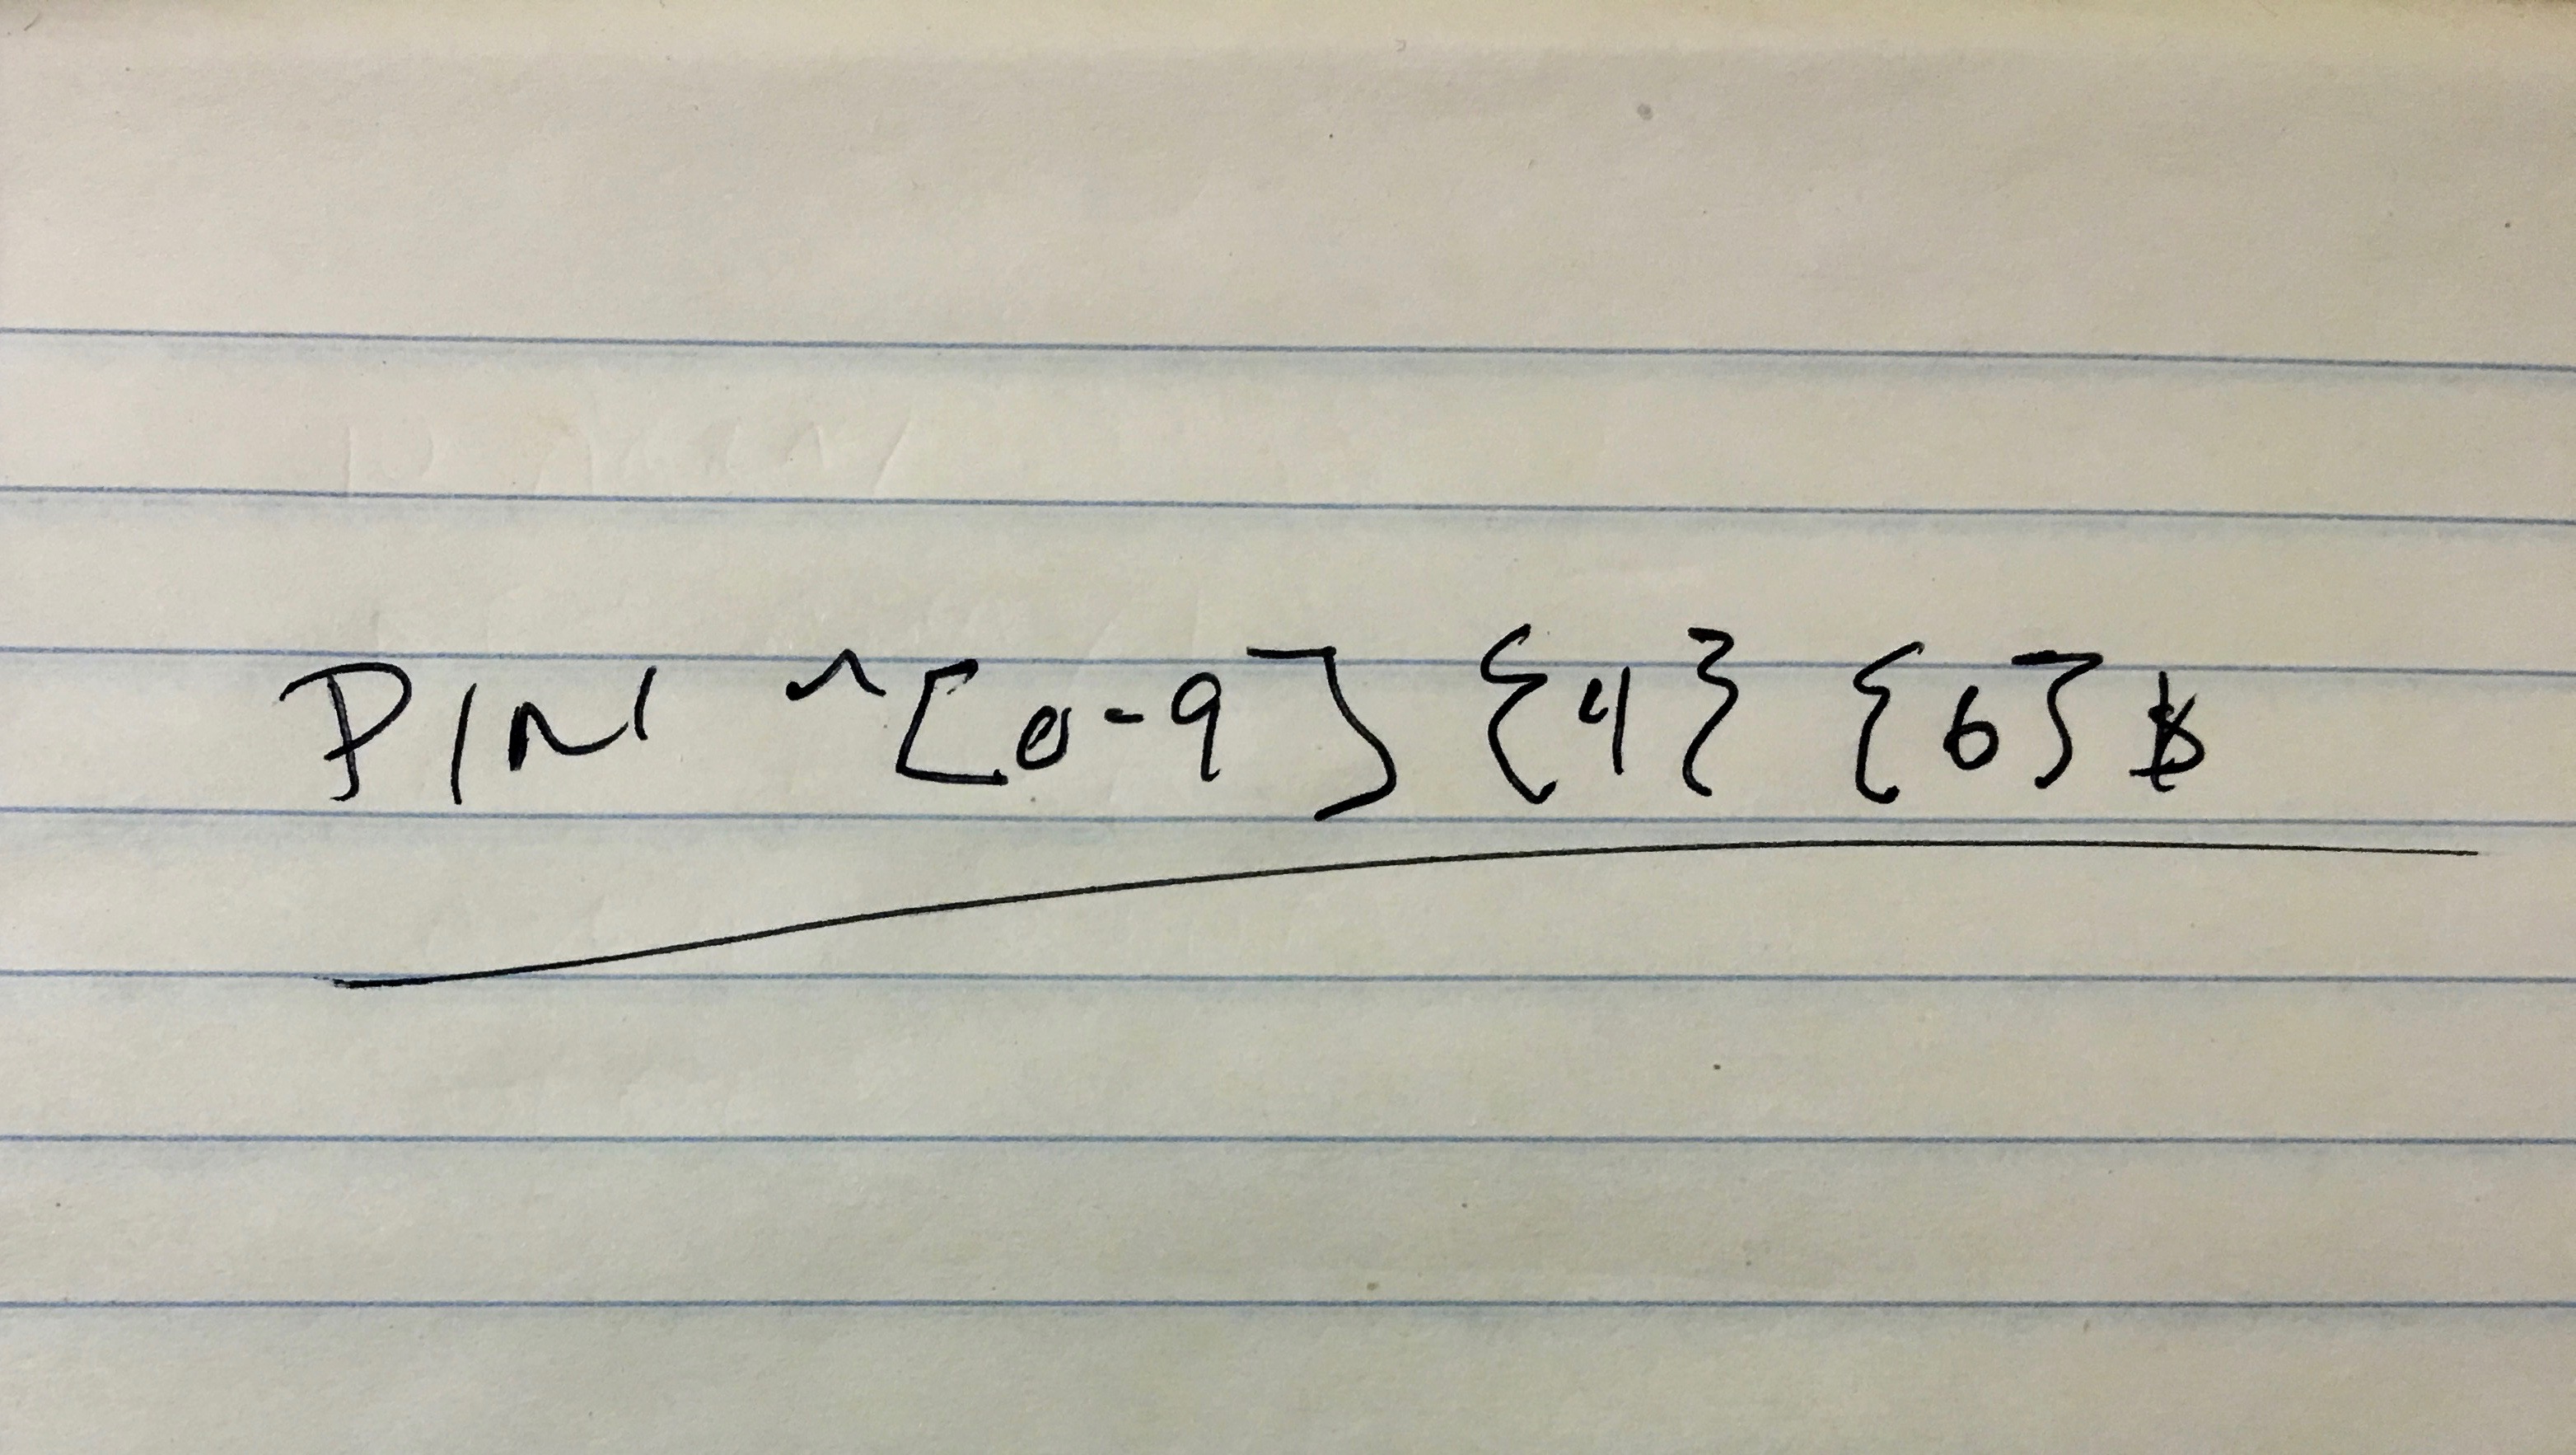 PIN ^[0-9] {4} {6}$